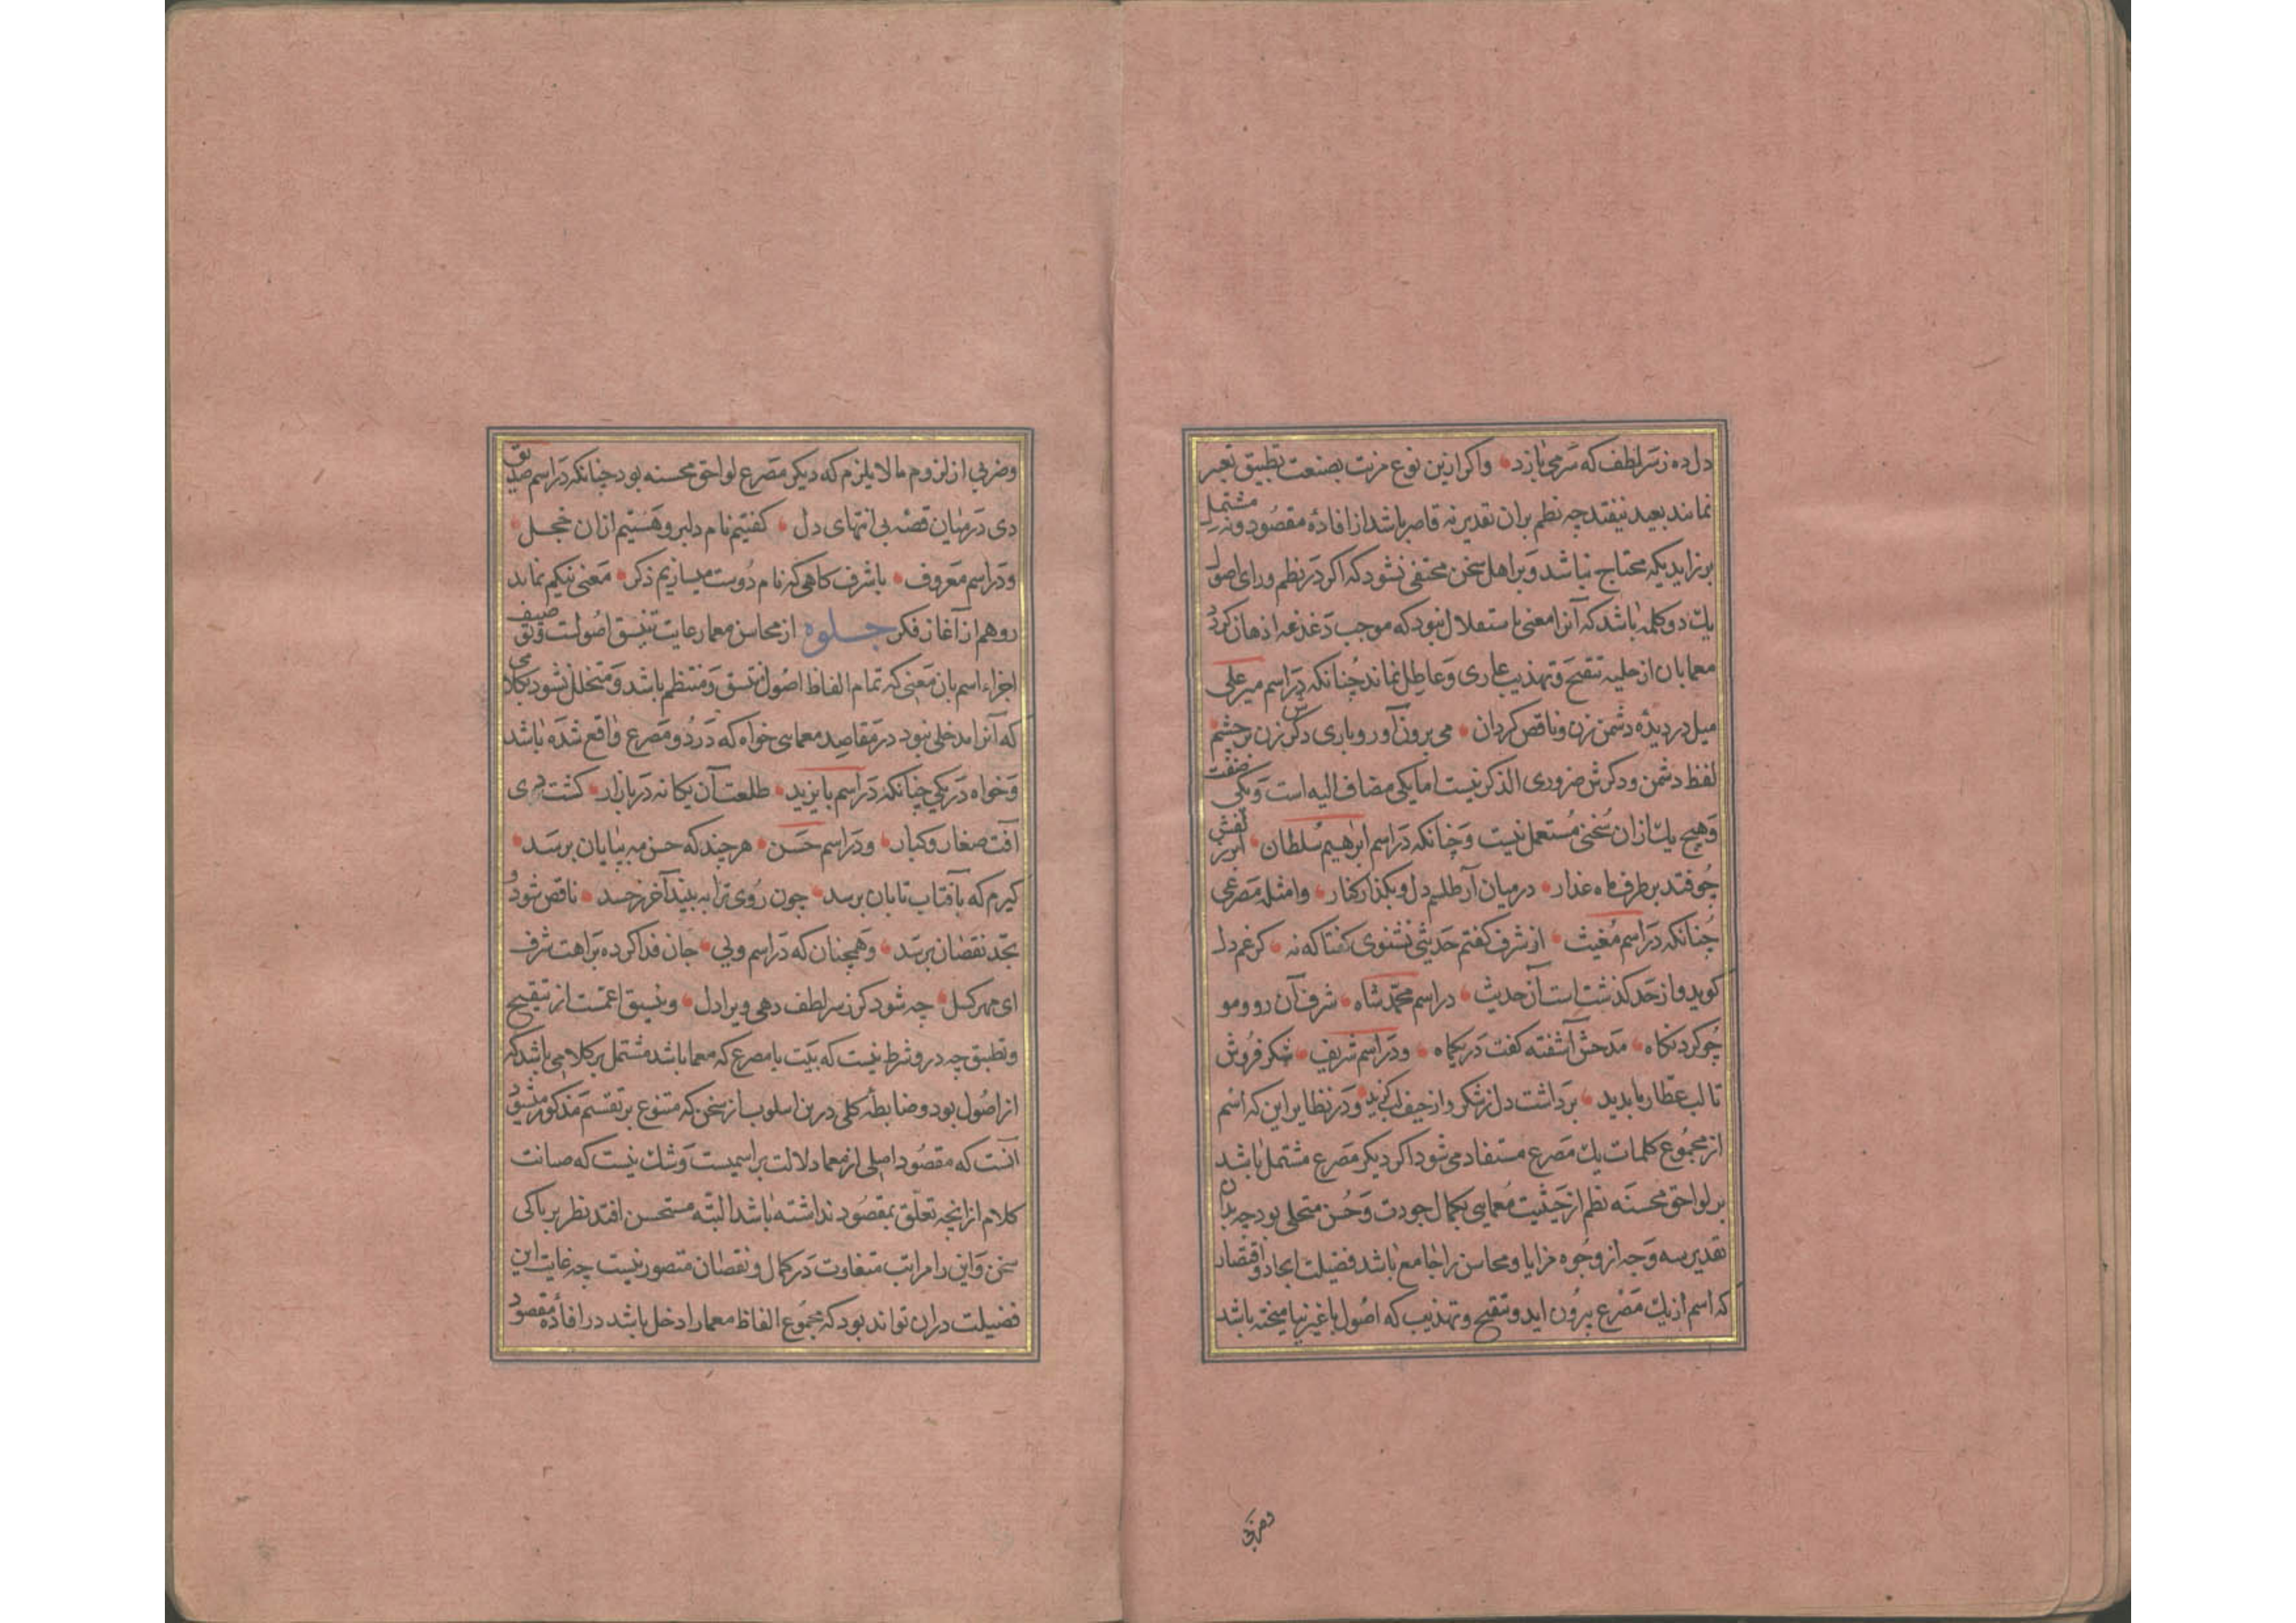 دل ده ز سر لطف که سر می بازد واکر ازین نوع مزیت بصنعت تطبیق تعبیر
نمایند بعید نیفتد چه نظم بران تقدیر نه قاصر باشد از افادهٔ مقصود ونه مشتمل
بر زایدی که محتاج نباشد وبر اهل سخن مختفی نشود که اکر در نظم ورای اصول
یك دو کلمه باشد که آنرا معنی باستقلال نبود که موجب دغدغه اذهان کردد
معما بان از حلیه تنقیح وتهذیب عاری وعاطل نماند چنانکه در اسم میر علی
میل در دیدهٔ دشمن زن وناقص کردان می برون آور وباری دکرش زن بر چشم
لفظ دشمن ودکرش ضروری الذکر نیست اما یکی مضاف الیه است ویکی صفت
وهیچ یك ازان سخنی مستعمل نیست وچنانکه در اسم ابرهیم سلطان
چو فتد بر طرف ماه عذار در میان آر طلسم دل وبکذار کنار وامثله مصرعی
چنانکه در اسم مغیث از شرف کفتم حدیثی نشنوی کفتا که نه کر غم دل
کوید واز حد کذشتست آن حدیث در اسم محمد شاه شرف آن رو ومو
چو کرد نکاه مدحش آشفته کفت در یکماه ودر اسم شریف شکر فروش
تا لب عطار ما بدید برداشت دل ز شکر واز حیف لب کزید ودر نظایر این که اسم
از مجموع کلمات یك مصرع مستفاد می شود اکر دیکر مصرع مشتمل باشد
بر لواحق محسنه نظم از حیثیت معمایی بکمال جودت وحسن متحلی بود چه بدان
تقدیر سه وجه از وجوه مزایا ومحاسن را جامع باشد فضیلت ایجاد واقتصار
که اسم از یك مصرع بیرون اید وتنقیح وتهذیب که اصول با غیر نیامیخته باشد
وضربی
وضربی از لزوم ما لا یلزم که دیکر مصرع لواحق محسنه بود چنانکه در اسم صدیق
دی در میان قصه بی انتهای دل کفتیم نام دلبر وهستیم ازان خجل
ودر اسم معروف با شرف کاهی که نام دوست میسازیم ذکر معنی نیکم نماید
رو هم از آغاز فکر جلوه از محاسن معما رعایت تنسیق اصولست وتوصیف
اجزاء اسم بان معنی که تمام الفاظ اصول متسق ومنتظم باشد ومتخلل نشود بکلامی
که آنرا مدخلی نبود در مقاصد معمایی خواه که در دو مصرع واقع شده باشد
وخواه در یکی چنانکه در اسم بایزید طلعت آن یکانه در بازار کشت دی
آفت صغار وکبار ودر اسم حسن هر چند که حسن مه بپایان برسد
کیرم که بآفتاب تابان برسد چون روی ترا به بیند آخر ز حسد ناقص شود و
بحد نقصان برسد وهمچنان که در اسم ولی جان فدا کرده براهت شرف
ای مهر کسل چه شود کر ز سر لطف دهی ویرا دل وتنسیق اعمّست از تنقیح
وتطبیق چه درو شرط نیست که بیت یا مصرع که معما باشد مشتمل بر کلامی باشد که
از اصول بود وضابطه کلی درین اسلوب از سخن که متنوع بر تقسیم مذکور میشود
آنست که مقصود اصلی از معما دلالت بر اسمیست وشك نیست که صیانت
کلام از انچه تعلق بمقصود نداشته باشد البته مستحسن افتد نظر بر پاکی
سخن واین را مراتب متفاوت در کمال ونقصان متصور نیست چه غایت این
فضیلت دران تواند بود که مجموع الفاظ معما را دخل باشد در افادهٔ مقصود